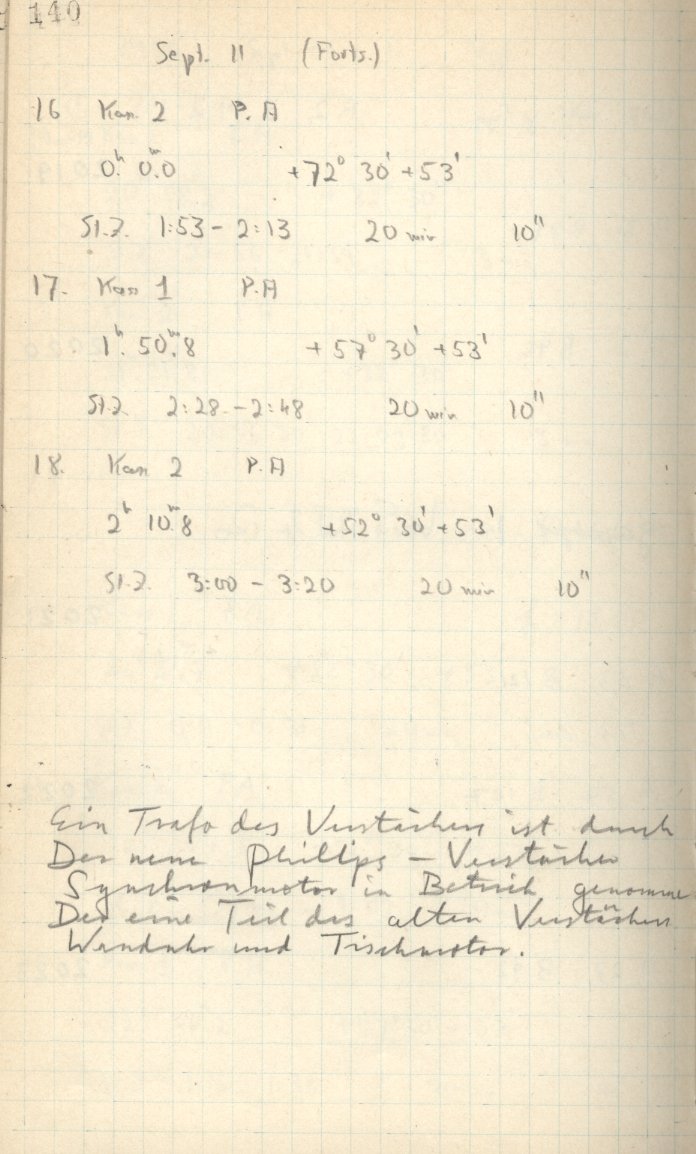 140
Sept. 11 (Forts.)
16 Kas. 2 P.A
0h. 0m.0 +72° 30' +53'
St.Z. 1:53 - 2:13 20 min 10"
17. Kass 1 P.A
1h. 50m.8 +57° 30' +53'
St.Z 2:28 - 2:48 20 min 10"
18. Kass 2 P.A
2h 10m.8 +52° 30' +53'
St.Z. 3:00 - 3:20 20 min 10"
Ein Trafo des Verstärkers ist durch
Der neue Phillips - Verstärker
Synchronmotor in Betrieb genomme
Der eine Teil des alten Verstärkers
Wanduhr und Tischmotor.